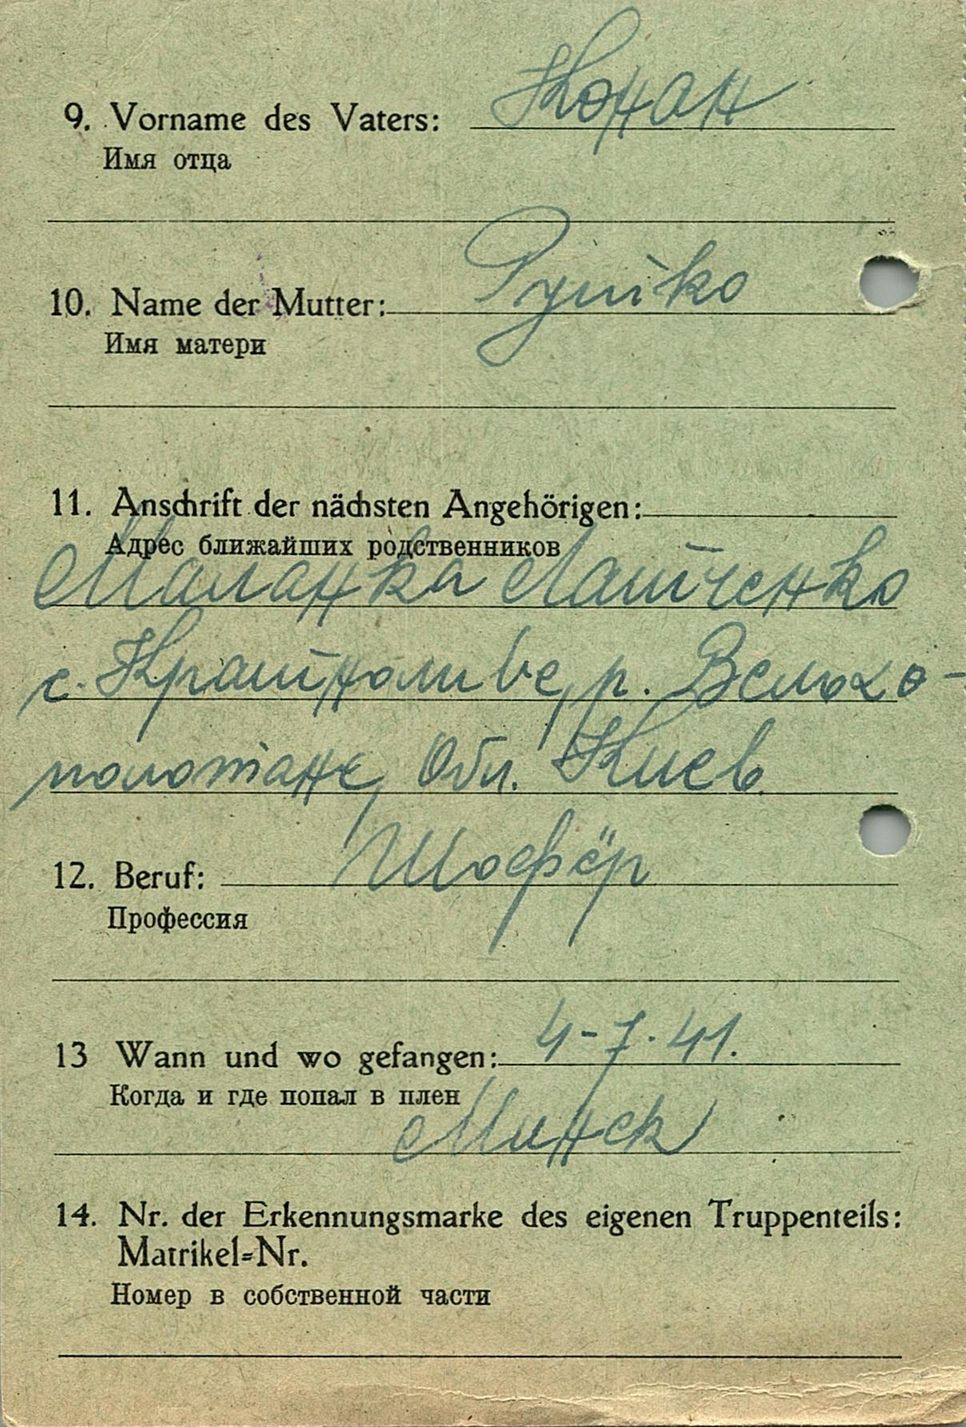 9. Vorname des Vaters: Конан
Имя отца
10. Name der Mutter:
Имя матери
11. Anschrift der nächsten Angehörigen:
Адрес ближайших родственников
Маланка
с. р.
Обл. Киев.
12. Beruf: Шофёр
Профессия
13 Wann und wo gefangen: 4-7.41.
Когда и где попал в плен
Минск
14. Nr. der Erkennungsmarke des eigenen Truppenteils:
Matrikel-Nr.
Номер в собственной части